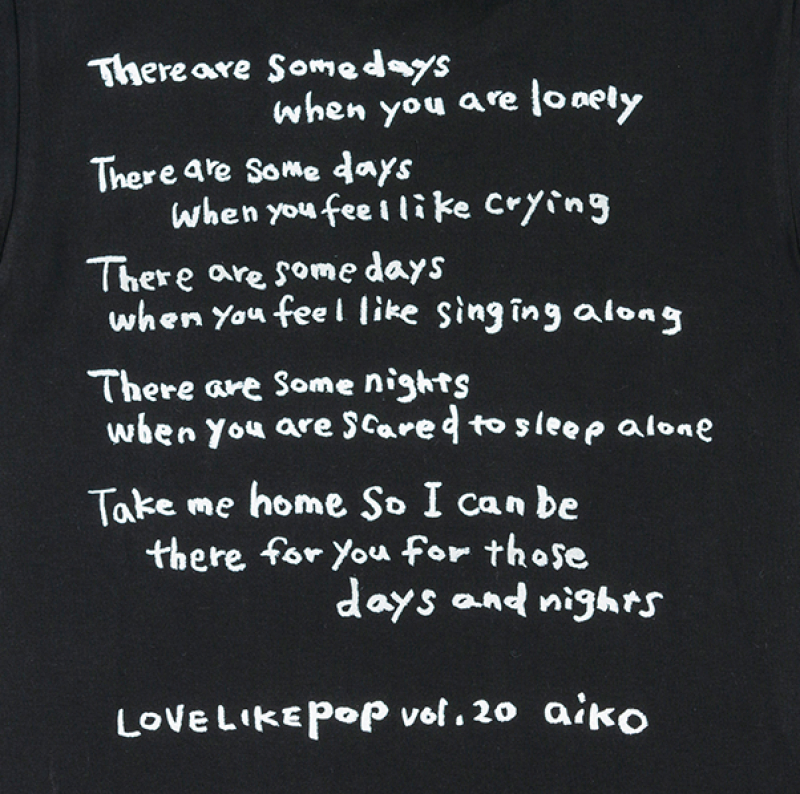 There are some days
when you are lonely
There are some days
when you feel like crying
There are some days
when you feel like singing along
There are some nights
when you are scared to sleep alone
Take me home so I can be
there for you for those
days and nights
LOVE LIKE POP vol.20 aiko